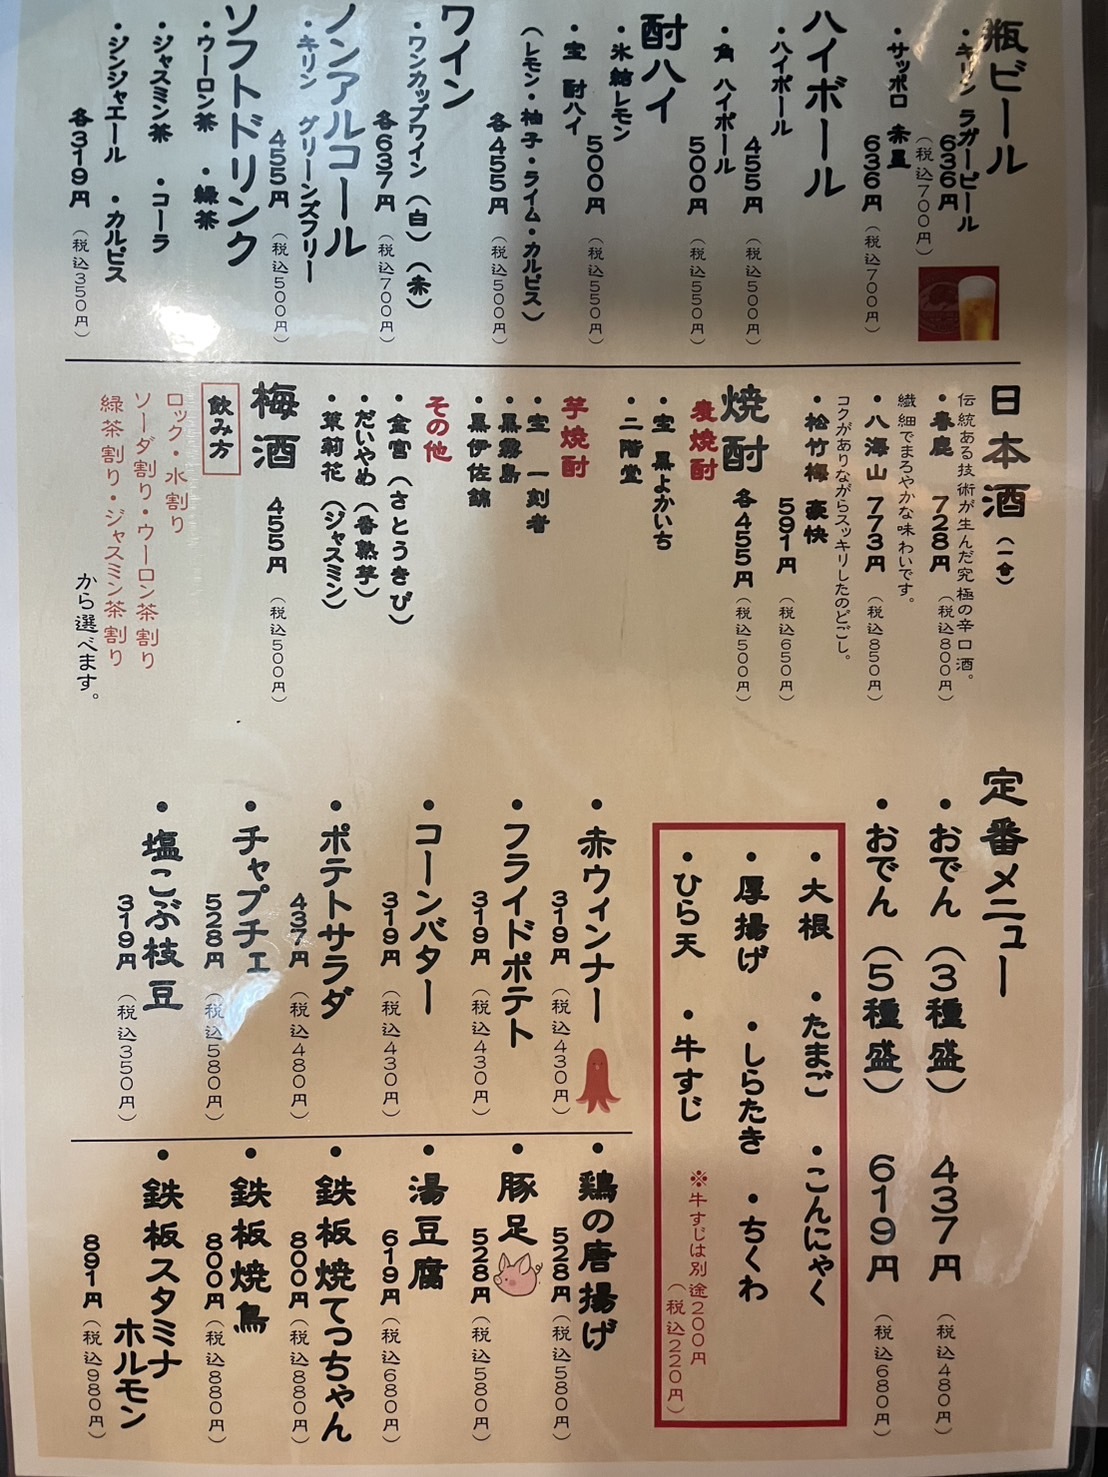 瓶ビール
・キリン ラガービール
636円
(税込700円)
・サッポロ 赤星
636円(税込700円)
ハイボール
・ハイボール
455円(税込500円)
・角 ハイボール
500円(税込550円)
酎ハイ
・氷結レモン
500円(税込550円)
・宝 酎ハイ
(レモン・柚子・ライム・カルピス)
各455円(税込500円)
ワイン
・ワンカップワイン(白)(赤)
各637円(税込700円)
ノンアルコール
・キリン グリーンズフリー
455円(税込500円)
ソフトドリンク
・ウーロン茶 ・緑茶
・ジャスミン茶 ・コーラ
・ジンジャエール ・カルピス
各319円(税込350円)
日本酒(一合)
伝統ある技術が生んだ究極の辛口酒。
・春鹿 728円(税込800円)
繊細でまろやかな味わいです。
・八海山 773円(税込850円)
コクがありながらスッキリしたのどごし。
・松竹梅 豪快
591円(税込650円)
焼酎 各455円(税込500円)
麦焼酎
・宝 黒よかいち
・二階堂
芋焼酎
・宝 一刻者
・黒霧島
・黒伊佐錦
その他
・金宮(さとうきび)
・だいやめ(番熟芋)
・茉莉花(ジャスミン)
梅酒 455円(税込500円)
飲み方
ロック・水割り
ソーダ割り・ウーロン茶割り
緑茶割り・ジャスミン茶割り
から選べます。
定番メニュー
・おでん(3種盛) 437円(税込480円)
・おでん(5種盛) 619円(税込680円)
・大根 ・たまご ・こんにゃく
・厚揚げ ・しらたき ・ちくわ
・ひら天 ・牛すじ
※牛すじは別途200円
(税込220円)
・赤ウィンナー
319円(税込430円)
・フライドポテト
319円(税込430円)
・コーンバター
319円(税込430円)
・ポテトサラダ
437円(税込480円)
・チャプチェ
528円(税込580円)
・塩こぶ枝豆
319円(税込350円)
・鶏の唐揚げ
528円(税込580円)
・豚足
528円(税込580円)
・湯豆腐
619円(税込680円)
・鉄板焼てっちゃん
800円(税込880円)
・鉄板焼鳥
800円(税込880円)
・鉄板スタミナ
ホルモン
891円(税込980円)